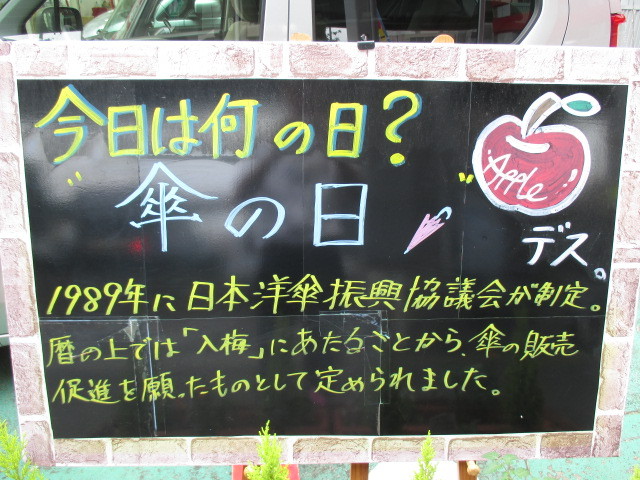 今日は何の日?
"傘の日"
Apple
デス。
1989年に日本洋傘振興協議会が制定。
暦の上では「入梅」にあたることから、傘の販売
促進を願ったものとして定められました。